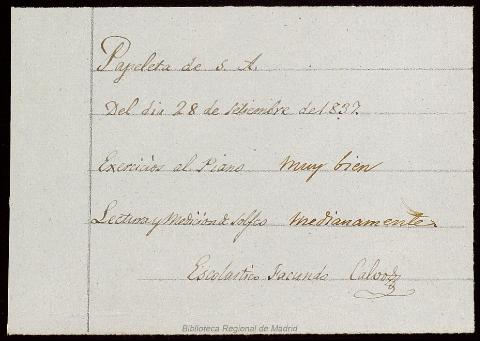 Papeleta de S. A.
Del dia 28 de Setiembre de 1837
Exercicios al Piano Muy bien
Lectura y Medicion de Solfeo Medianamente
Escolastico Facundo Calvo
Biblioteca Regional de Madrid